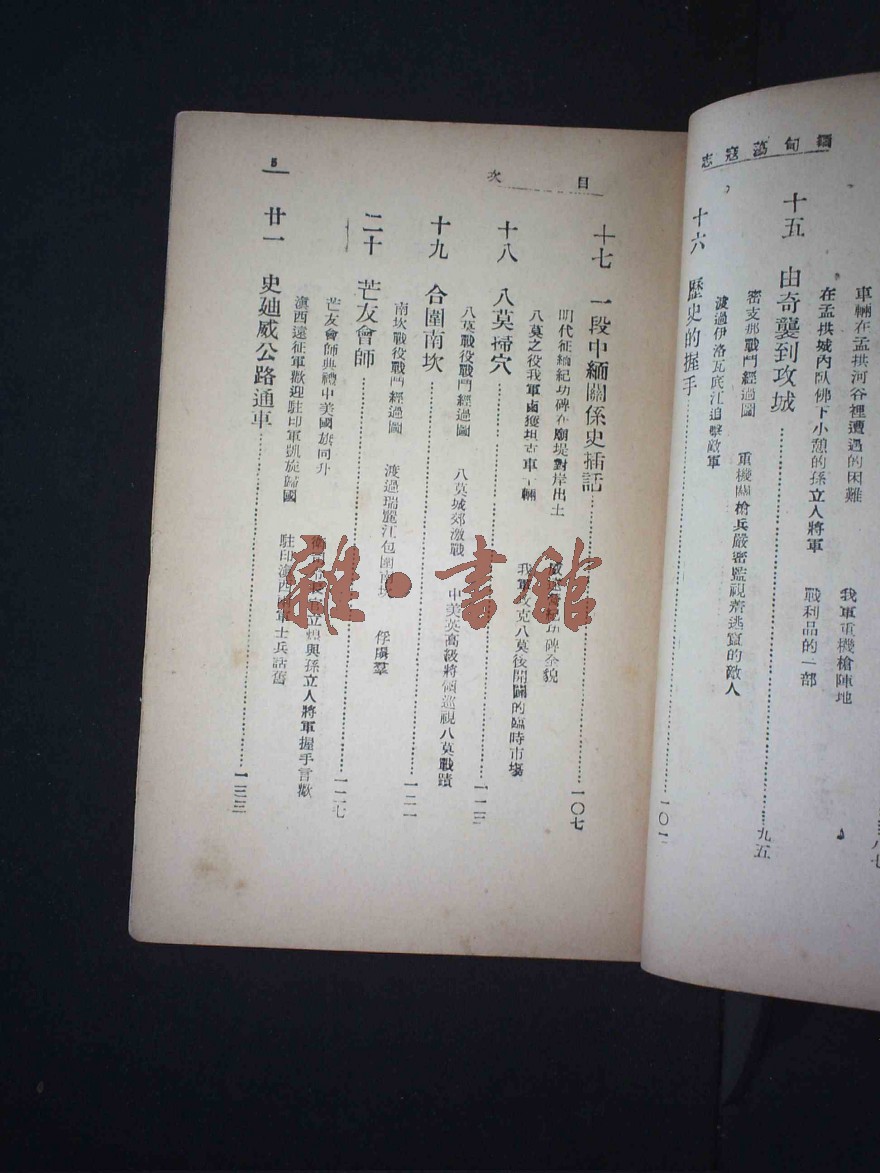 緬甸蕩寇志
車輛在孟拱河谷裡遭遇的困難
我軍重機槍陣地
在孟拱城內臥佛下小憩的孫立人將軍
戰利品的一部
十五 由奇襲到攻城……九五
密支那戰鬥經過圖
重機關槍兵嚴密監視着逃竄的敵人
渡過伊洛瓦底江追擊敵軍
十六 歷史的握手
目次
十七 一段中緬關係史插話……一〇七
明代征緬紀功碑在廟堤對岸出土
紀功碑全貌
八莫之役我軍鹵獲坦克車一輛
我軍攻克八莫後開闢的臨時市場
十八 八莫掃穴……一一三
八莫戰役戰鬥經過圖
八莫城郊激戰
中美英高級將領巡視八莫戰蹟
十九 合圍南坎……一二一
南坎戰役戰鬥經過圖
渡過瑞麗江包圍南坎
俘虜羣
二十 芒友會師……一二七
芒友會師典禮中美國旗同升
衛立煌與孫立人將軍握手言歡
滇西遠征軍歡迎駐印軍凱旋歸國
駐印滇西兩軍士兵話舊
廿一 史廸威公路通車……一三三
5
雜·書館